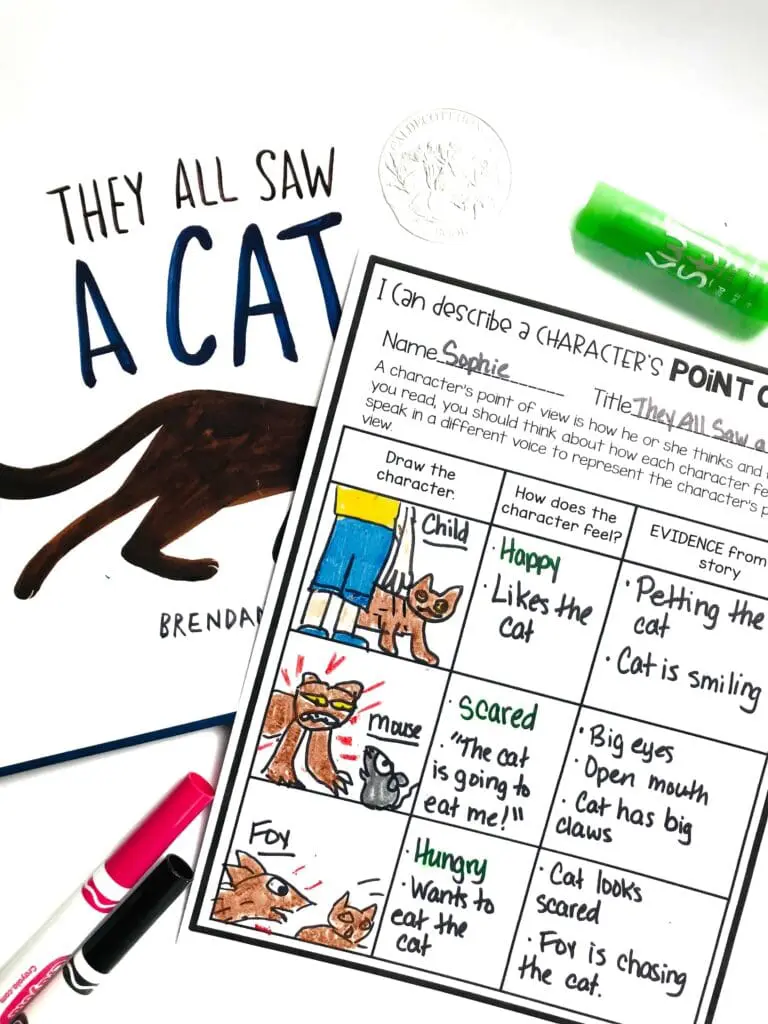 THEY ALL SAW
A CAT
BRENDAN
CALDECOTT HON
I can describe a CHARACTER'S POINT
Name Sophie
Title They All Saw a
A character's point of view is how he or she thinks and
you read, you should think about how each character
speak in a different voice to represent the character's
view.
Draw the
character.
How does the
character feel?
EVIDENCE from
story
Child
· Happy
· Likes the
cat
· Petting the
cat
· Cat is smiling
mouse
· Scared
· "The cat
is going to
eat me!"
· Big eyes
· Open mouth
· Cat has big
claws
Fox
· Hungry
· Wants to
eat the
cat
· Cat looks
scared
· Fox is chasing
the cat.
Crayola